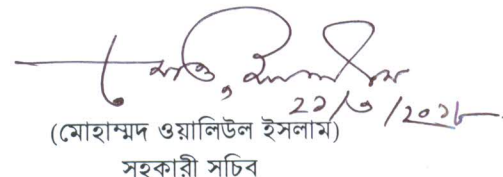 ২১/৩/২০১৮
(মোহাম্মদ ওয়ালিউল ইসলাম)
সহকারী সচিব